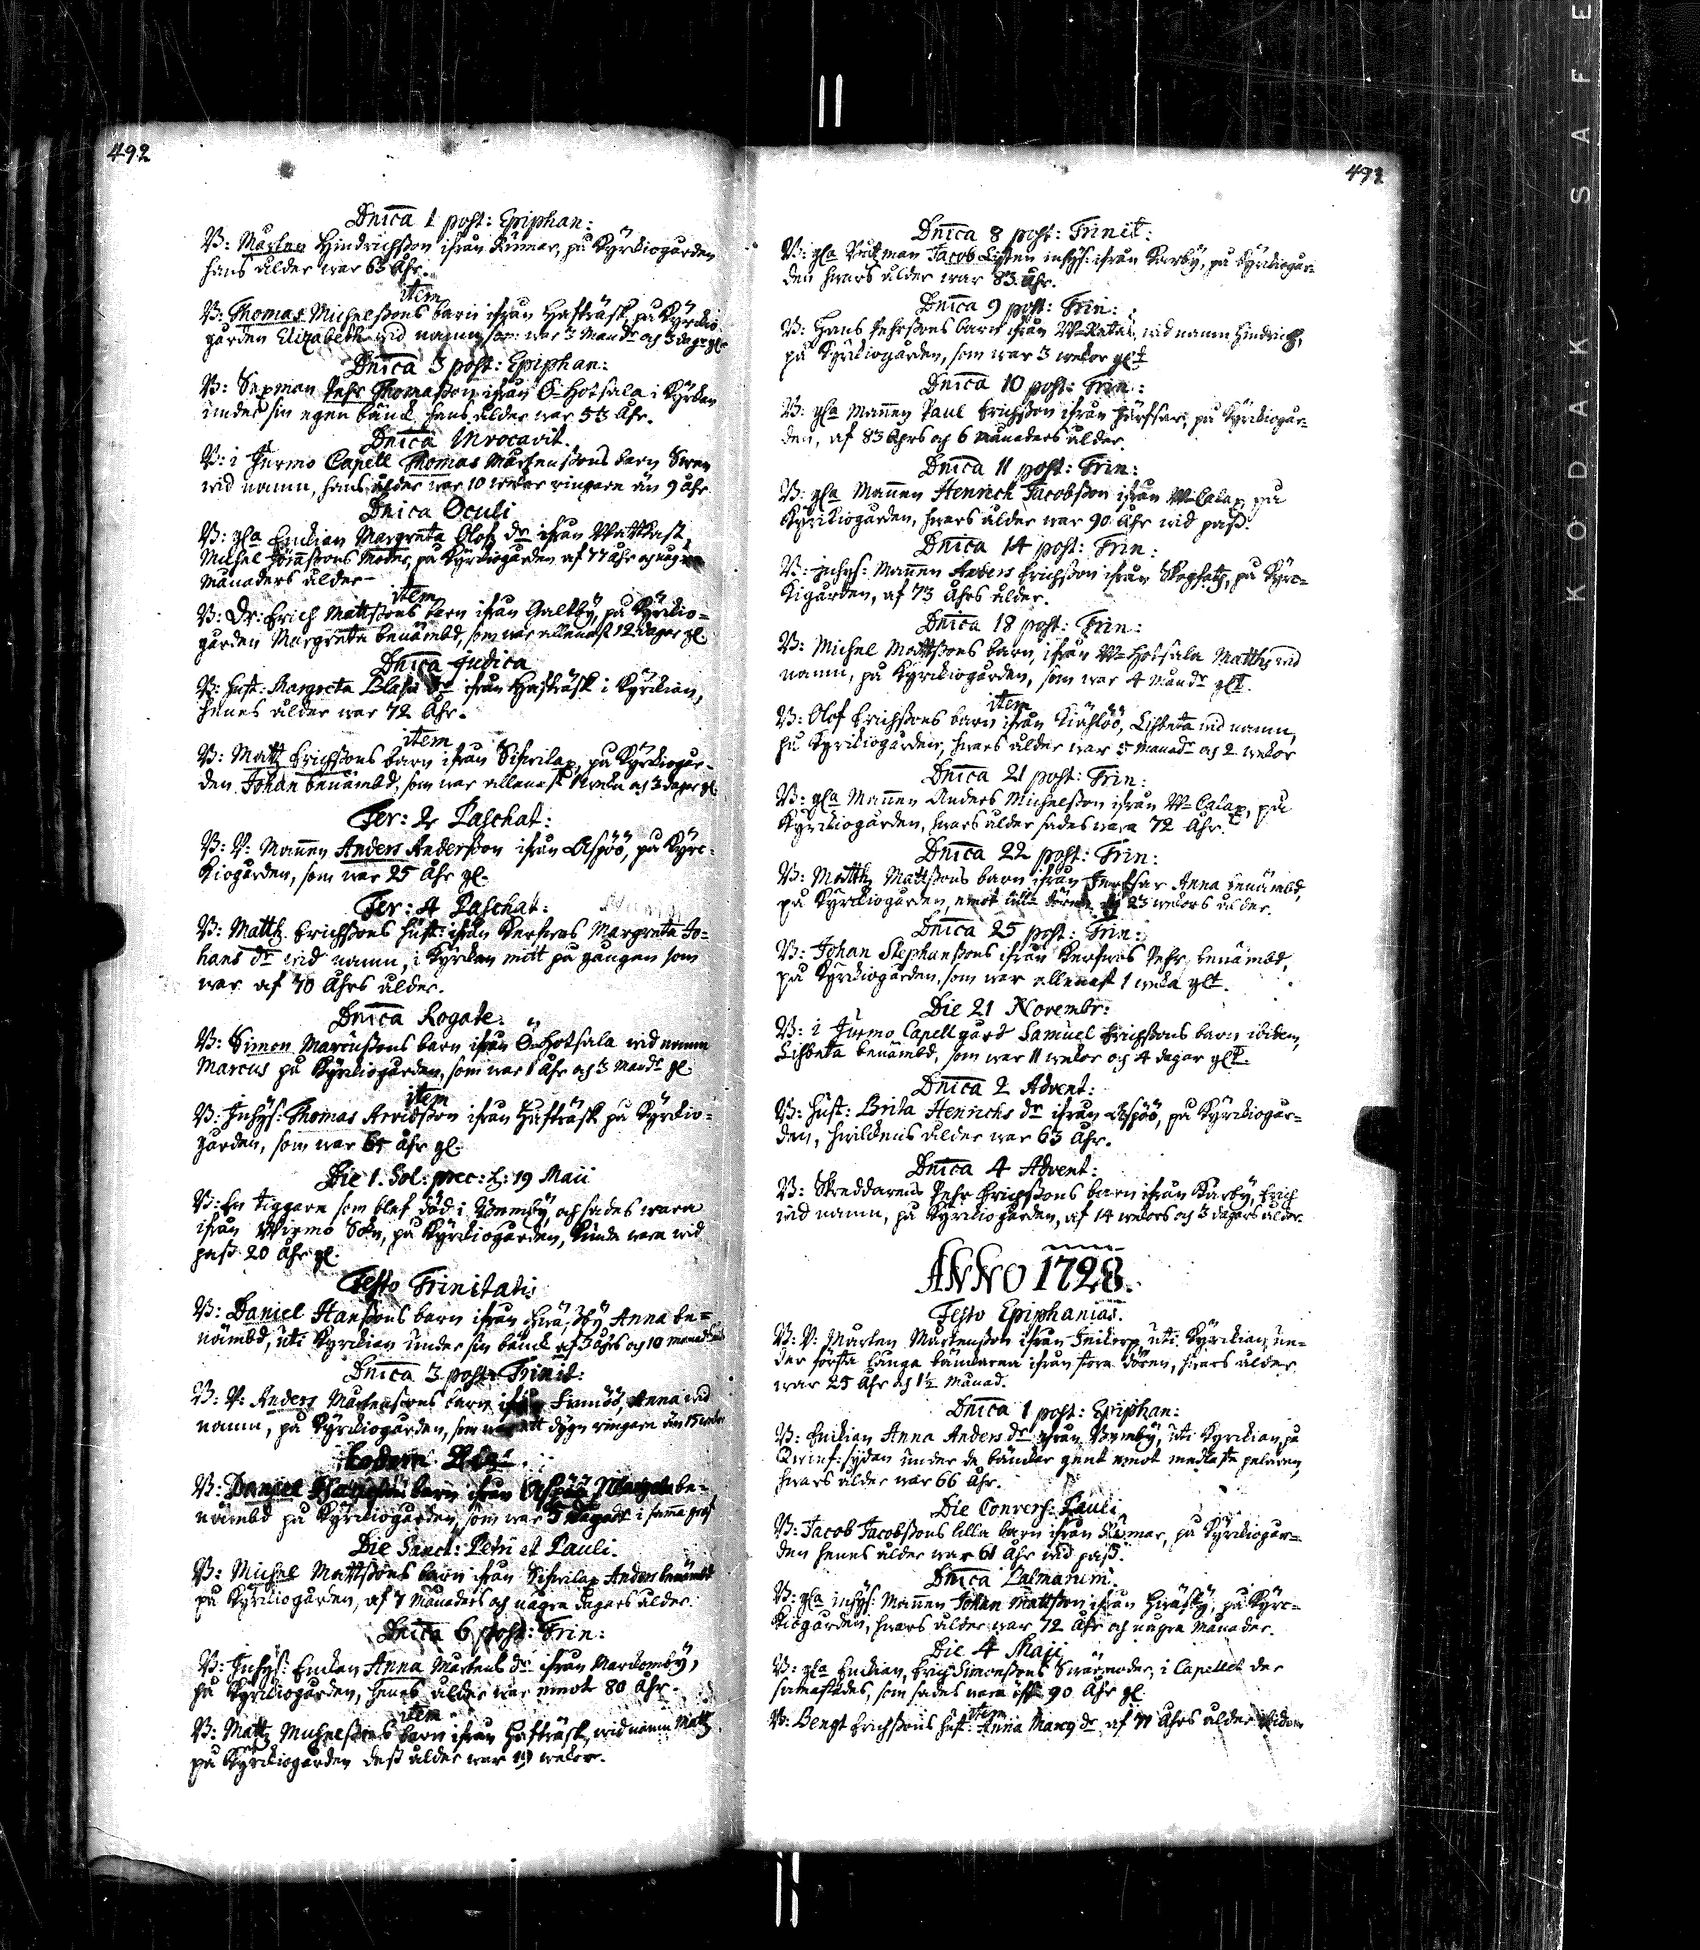 492
Dnica 1 post: Epiphan:
B: Marten Hindrichsson ifrån Rumar, på Kyrkiogården
hans ålder war 63 åhr.
item
B: Thomas Michelssons barn ifrån Hafträsk, på Kyrkio
gården Elizabeth wid namn, som war 3 Månd: och 3 dagr gl.
Dnica 3 post: Epiphan:
B: Sexman Pehr Thomasson ifrån Ö-Hotsala i Kyrkan
under sin egen bänck, hans ålder war 53 åhr.
Dnica Invocavit.
B: i Jurmo Capell Thomas Mårtenssons barn Swen
wid namn, hans ålder war 10 wekor ringare än 9 åhr
Dnica Oculi
B: gla Enkian Margreta Olofz dr ifrån Wattkast,
Michel Jöranssons Moder, på Kyrkiogården af 77 åhr och några
Månaders ålder
item
B: Dr: Erich Mattssons barn ifrån Galtby, på Kyrkio=
gården Margreta benämbd, som war allenast 12 dagar gl.
Dnica Judica
B: hust: Margreta Blasii dr ifrån Hafträsk i Kyrkian,
henes ålder war 72 åhr.
item
B: Matz Erichssons barn ifrån Sifwilax, på Kyrkiogår-
den Johan benämbd, som war allenast 1 weka och 3 dagar gl.
Fer: 2 Paschat:
B: V: Mannen Anders Andersson ifrån Aspöö, på Kyrc-
kiogården, som war 25 åhr gl.
Fer: 4 Paschat:
B: Matts Erichssons hust: ifrån Kerfwes Margreta Jo=
hans dr wid namn, i Kyrkan mitt på gången som
war af 70 åhrs ålder.
Dnica Rogate.
B: Simon Marcussons barn ifrån Ö-Hotsala wid namn
Marcus på Kyrkiogården, som war 1 åhr och 3 Månd: gl.
item
B: Inhys: Thomas Arvidsson ifrån Hafträsk på Kyrkio=
gården, som war 65 åhr gl.
Die 1. Rol: prec: d: 19 Maii
B: En tiggare som blef död i Wannby, och sades wara
ifrån Wirmo Sokn, på Kyrkiogården, kunde wara wid
pass 20 åhr gl.
Festo Trinitatis
B: Daniel Hanssons barn ifrån Anna be=
nämbd, uti Kyrkian under sin bänck af 3 åhrs och 10 månad
Dnica 3 post: Trinit:
B: V: Anders Mårtenssons barn ifrån Anna wid
namn, på Kyrkiogården, som war ett dygn ringare än 15 wekor
Eodem Die.
B: Daniel barn ifrån Aspöö Margeta be=
nämbd på Kyrkiogården, som war 5 dagar i samma graf
Die Sanct: Petri et Pauli.
B: Michel Mattssons barn ifrån Sifwilax Anders benämbd
på Kyrkiogården, af 7 Månaders och några dagars ålder.
Dnica 6 post: Trin:
B: Inhys: Enckan Anna Mårtens dr ifrån Markomby,
på Kyrkiogården, henes ålder war emot 80 åhr.
item
B: Matz Michelssons barn ifrån Hafträsk, wid namn Matz
på Kyrkiogården dess ålder war 19 wekor.
493
Dnica 8 post: Trinit:
B: gla man Jacob inhys: ifrån Karby, på Kyrkiogår-
den hwars ålder war 83. åhr.
Dnica 9 post: Trin:
B: Hans Pehrssons barn ifrån W-Rätäis, wid namn Hindrich,
på Kyrkiogården, som war 3 wekor glt
Dnica 10 post: Trin:
B: gla Mannen Paul Erichsson ifrån på Kyrkiogår=
den, af 83 åhrs och 6 månaders ålder.
Dnica 11 post: Trin:
B: gla Mannen Henrich Jacobsson ifrån W-Calax, på
Kyrkiogården, hwars ålder war 90 åhr wid pass.
Dnica 14 post: Trin:
B: inhys: Mannen Anders Erichsson ifrån på Kyrc=
kigården, af 73 åhrs ålder.
Dnica 18 post: Trin:
B: Michel Mattssons barn, ifrån W-Hotsala Matths wid
namn, på Kyrkiogården, som war 4 Månd: glt.
item
B: Olof Erichssons barn ifrån Kirjlöö, Lisbeta wid namn,
på Kyrkiogården, hwars ålder war 5 månad: och 2 wekor
Dnica 21 post: Trin:
B: gla Mannen Anders Michelsson ifrån W-Calax, på
Kyrkiogården, hwars ålder sades wara 72 åhr.
Dnica 22 post: Trin:
B: Matths Mattssons barn ifrån Anna benämbd,
på Kyrkiogården, emot lilla dören af 23 wekors ålder.
Dnica 25 post: Trin:
B: Johan Stephanssons ifrån Kerfwes Pehr benämbd,
på Kyrkiogården, som war allenast 1 weka glt.
Die 21 Novembr:
B: i Jurmo Capellgård Samuel Erichssons barn ibidem,
Lisbeta benämbd, som war 11 wekor och 4 dagar glt.
Dnica 2 Advent:
B: hust: Brita Henrichs dr ifrån Aspöö, på Kyrkiogår=
den, hwilckens ålder war 63 åhr.
Dnica 4 Advent:
B: Skreddarens Pehr Erichssons barn ifrån Karby, Erich
wid namn, på Kyrkiogården, af 14 wekors och 3 dagars ålder
ANNO 1728.
Festo Epiphanias.
B: V: Marten Mårtensson ifrån uti Kyrkian, un-
der första långa bänckarna ifrån stora dören, hwars ålder
war 25 åhr och 1½ månad.
Dnica 1 post: Epiphan:
B: Enkian Anna Anders dr ifrån uti Kyrkian på
Qwinf: sydan under de bänckar gent emot medlaste pelaren,
hwars ålder war 66 åhr.
Die Convers: Pauli
B: Jacob Jacobssons lilla barn ifrån Rumar, på Kyrkiogår=
den henes ålder war 61 åhr wid pass.
Dnica Palmarum.
B: gla inhys: Mannen Johan Mattsson ifrån på Kyrc=
kiogården, hwars ålder war 72 åhr och några Månader.
Die 4 Maji
B: gla Enkian, Erich Simonssons Swärmoder, i Capellet der
sammastädes, som sades wara öfr 90 åhr gl
item
B: Bengt Erichssons hust: Anna Marcz dr af 77 åhrs ålder ibidem
KODAK SAFE